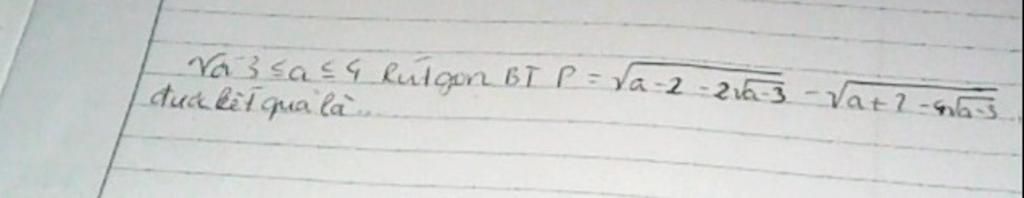 Và 3 ≤ a ≤ 4 Rút gọn BT P = √(a-2-2√(a-3)) - √(a+1-4√(a-3))
đưa kết quả là...